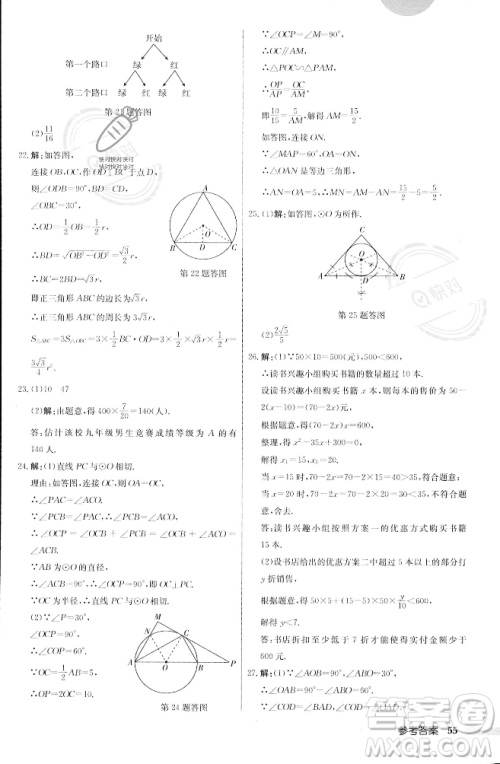 开始
第一个路口 绿 红
第二个路口 绿 红 绿 红
第21题答图
(2) 11/16
22.解:如答图,
连接 OB,OC,作 OD⊥BC 于点 D,
则∠ODB=90°,∠OBD=30°,
∴OD=1/2 OB=1/2 r,
∴BD=√(OB²-OD²)=√3/2 r,
∴BC=2BD=√3 r,
即正三角形 ABC 的边长为√3 r,
A
O
B D C
第 22 题答图
S△ABC=3S△OBC=3×1/2 BC·OD=3×1/2×√3 r×1/2 r=
3√3/4 r².
23.(1)10 47
(2)解:由题意,得 400×7/20=140(人).
答:估计该校九年级男生竞赛成绩等级为 A 的有
140人.
24.解:(1)直线 PC与⊙O 相切.
理由:如答图,连接 OC,则 OA=OC,
∴∠PAC=∠ACO.
∴∠PCB=∠ACO.
∵AB 为⊙O 的直径,
∴∠ACB=90°,
∴∠PCO=90°.
∵OC 为半径,∴直线 PC 与⊙O 相切.
(2)∵∠OCP=90°,
∠P=30°,
∴∠COP=60°,
∵OC=1/2 AB=5,
∴OP=10.
M
N C
A O B P
第 24 题答图
∵∠OCP=∠M=90°,
∴OC∥AM,
∴OP/AP=OC/AM,
即10/15=5/AM,解得 AM=15/2.
如答图,连接 ON.
∵∠MAP=60°,OA=ON,
∴△OAN 是等边三角形,
∴AN=OA=5,∴MN=AM-AN=15/2-5=5/2.
25.(1)解:如答图,⊙O 为所作.
C
O
A B
第 25 题答图
(2) 2√5/5
26.解:(1)∵50×10=500(元),500<600,
∴读书兴趣小组购买书籍的数量超过 10 本.
设读书兴趣小组购买书籍 x 本,则每本的售价是50-
2(x-10)=(70-2x)元.
根据题意,得 x(70-2x)=600,
整理,得 x²-35x+300=0,
解得 x₁=15,x₂=20.
当 x=15 时,70-2x=70-2×15=40,符合题意;
当 x=20 时,70-2x=70-2×20=30<35,不符合题
意,舍去.
答:读书兴趣小组按照方案一的优惠方式购买书籍
15 本.
(2)设书店给出的优惠方案二中超过 5 本以上的部分
打 y 折销售,
根据题意,得 50×5+50×(15-5)×y/10<600,
解得 y<7.
答:书店折扣需低于 7 折才能使得实付金额少于
600 元.
27.解:(1)∵∠AOB=∠COD=90°,
∴∠OAB+∠OBA=90°,
∠OCD+∠ODC=90°,
参考答案 55